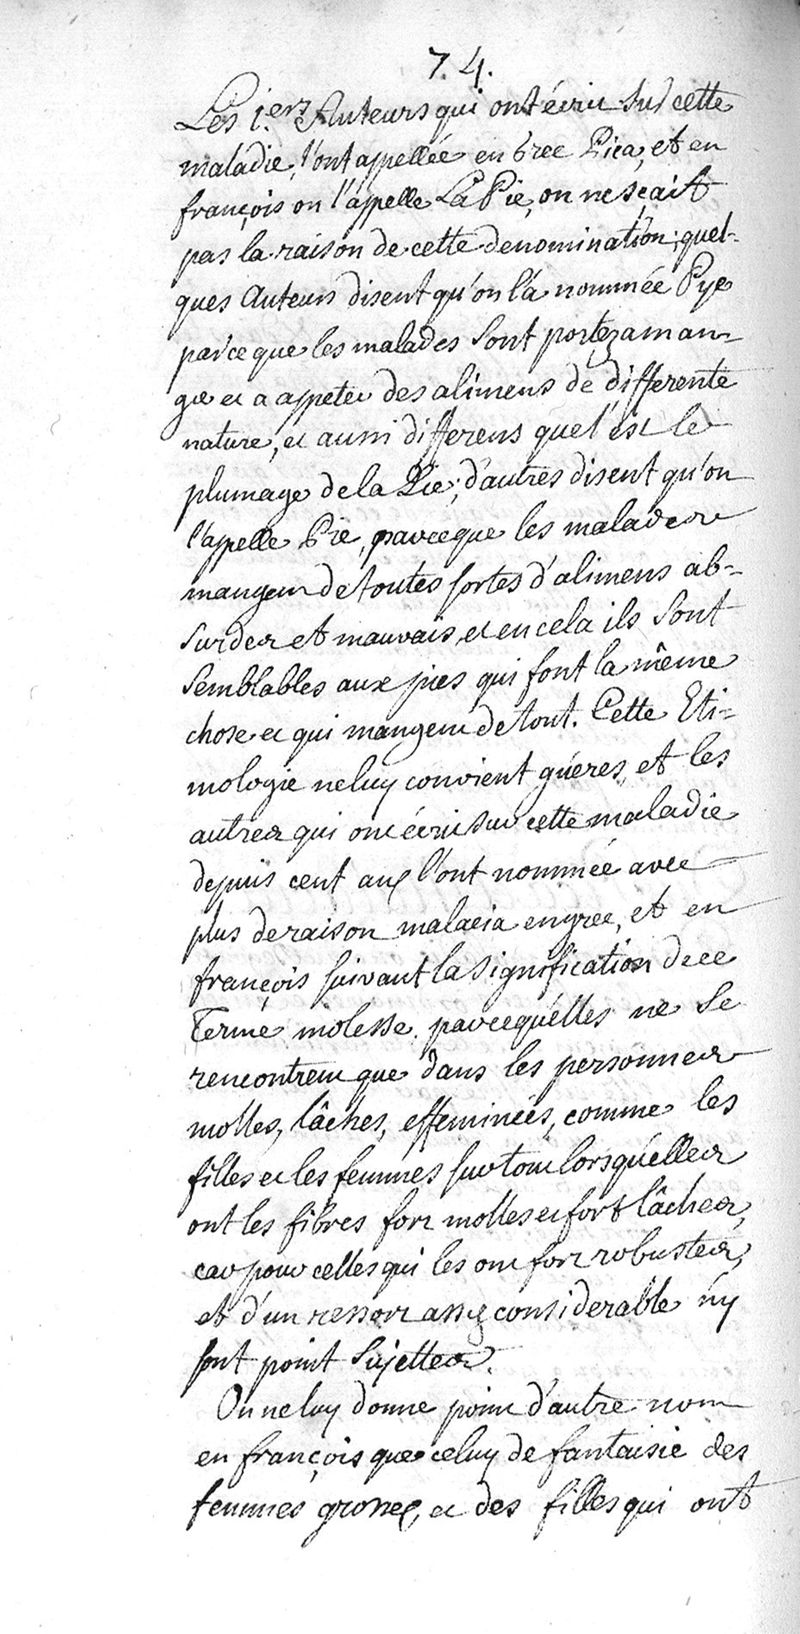 7.4.
Les 1.ers Auteurs qui ont écrit sur cette
maladie, l'ont appellée en Grec Pica, et en
françois on l'appelle La Pie, on ne sçait
pas la raison de cette denomination; quel-
ques Auteurs disent qu'on l'a nommée Pye
parce que les malades sont portez a man-
ger et a appeter des alimens de differente
nature, et aussi differens que l'est le
plumage de la Pie; d'autres disent qu'on
l'appelle Pie, parceque les malades
mangent de toutes sortes d'alimens ab-
surdes et mauvais, et en cela ils sont
semblables aux pies qui font la même
chose et qui mangent de tout. Cette Eti-
mologie ne luy convient guéres, et les
autres qui ont écrit sur cette maladie
depuis cent ans l'ont nommée avec
plus de raison malacia en grec, et en
françois suivant la signification de ce
Terme molesse. parcequ'elles ne se
rencontrent que dans les personnes
molles, lâches, effeminées, comme les
filles et les femmes surtout lorsqu'elles
ont les fibres fort molles et fort lâches,
car pour celles qui les ont fort robustes,
et d'un ressort assez considerable n'y
sont point sujettes.
On ne luy donne point d'autre nom
en françois que celuy de fantaisie des
femmes grosses, et des filles qui ont